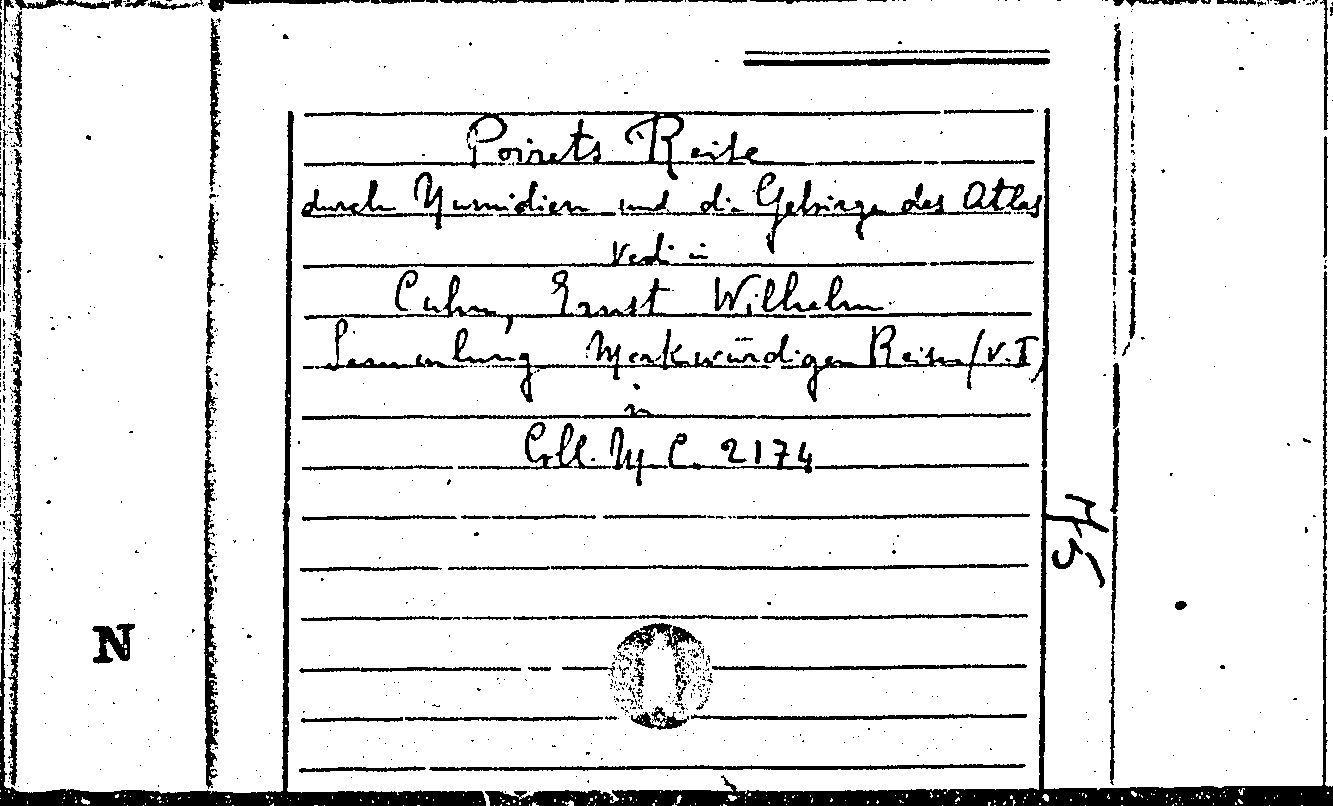 Poirets Reise
durch Numidien und die Gebirge des Atlas
Vedi in
Cuhn, Ernst Wilhelm
Sammlung Merkwürdigen Reisen (V. I)
in
Coll. M. C. 2174
N